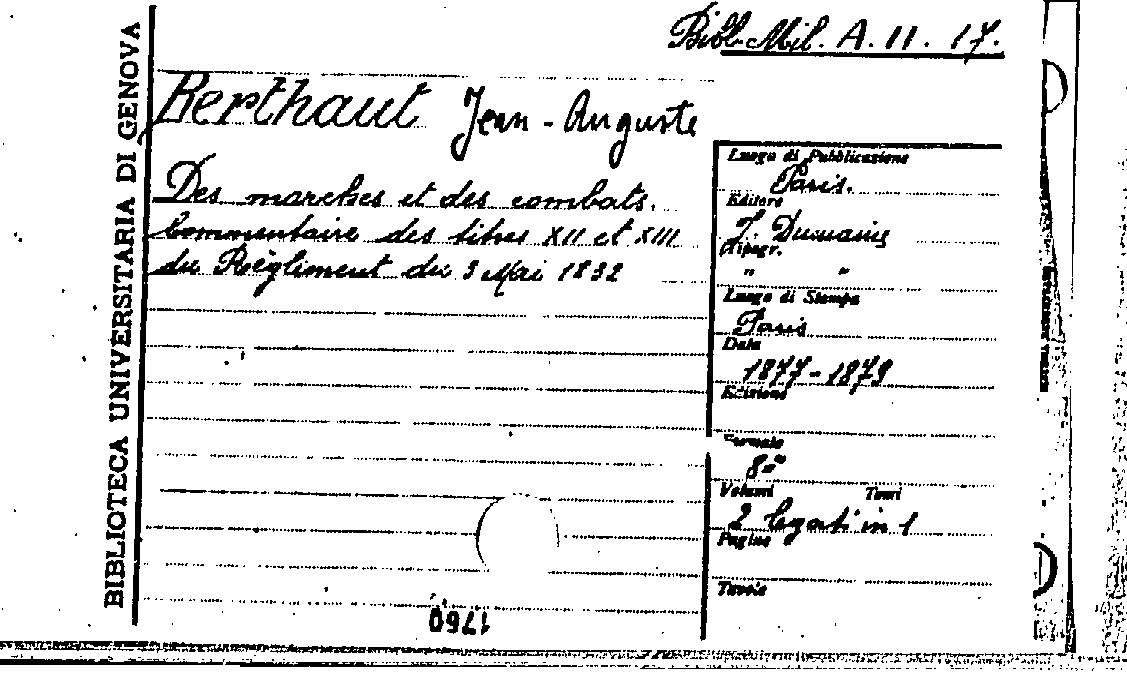 Bibl. Mil. A. 11. 17.
BIBLIOTECA UNIVERSITARIA DI GENOVA
Berthaut Jean-Auguste
Des marches et des combats.
Commentaire des titres XII et XIII
du Règliment du 3 Mai 1832
Luogo di Pubblicazione
Paris.
Editore
J. Dumaine
Tipogr.
" "
Luogo di Stampa
Paris
Data
1877-1879
Edizione
Formato
8°
Volumi Tomi
2 legati in 1
Pagine
Tavole
1760